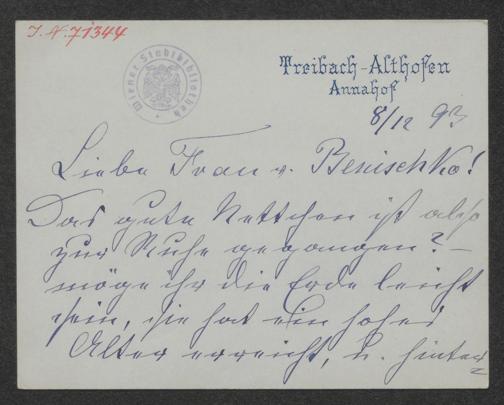 I. N. 71344
Wiener Stadtbibliothek
Treibach-Althofen
Annahof
8/12 93
Liebe Frau v. Benischko!
Das gute Nettchen ist also
zur Ruhe gegangen? –
möge ihr die Erde leicht
sein, sie hat ein hohes
Alter erreicht, u. hinter=